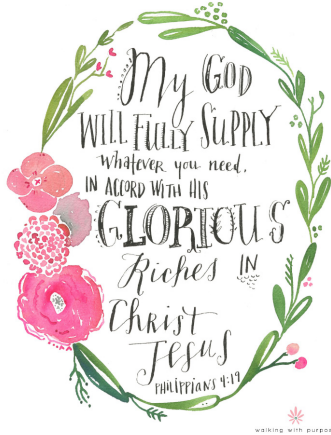 My GOD
WILL FULLY SUPPLY
whatever you need,
IN ACCORD WITH HIS
GLORIOUS
Riches IN
CHRIST
JESUS
PHILIPPIANS 4:19
walking with purpos